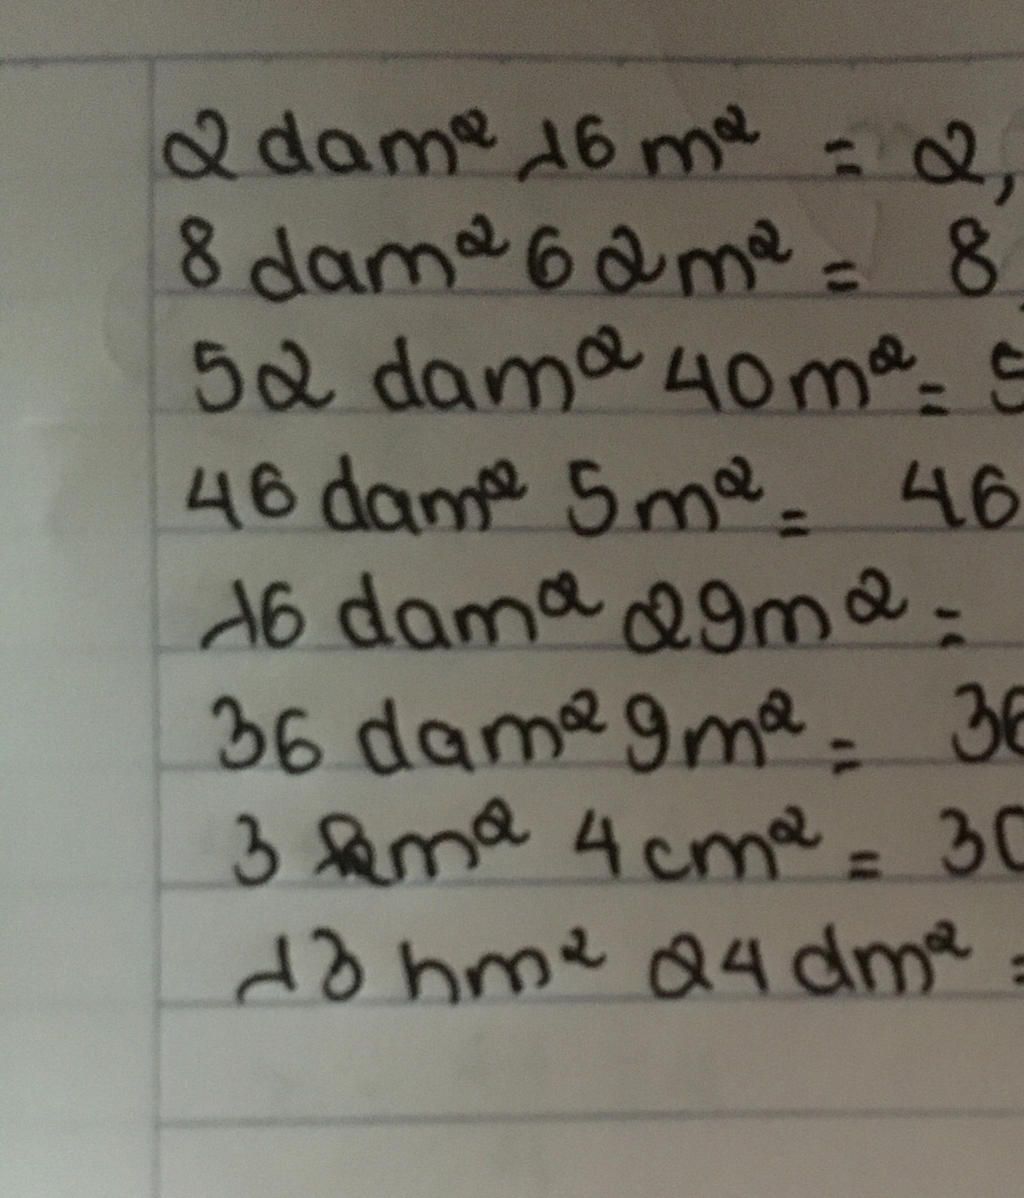 2 dam² 16 m² = 2,
8 dam² 62 m² = 8
52 dam² 40 m² = 5
46 dam² 5 m² = 46
16 dam² 29 m² =
36 dam² 9 m² = 36
3 m² 4 cm² = 30
13 hm² 24 dm² =